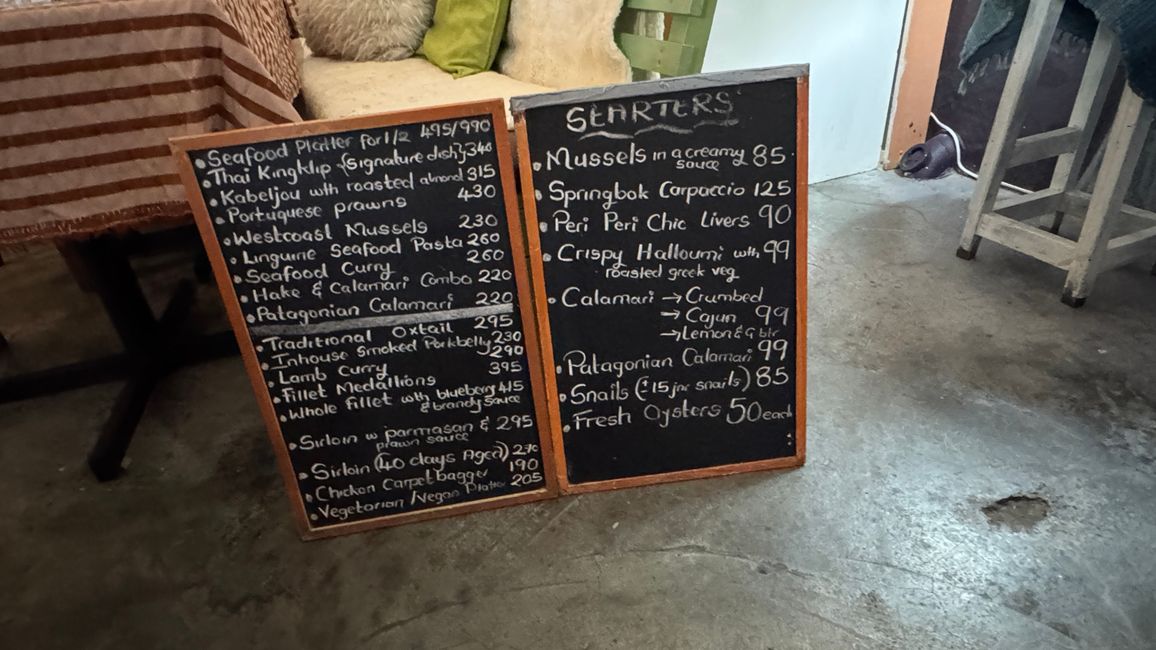 • Seafood Platter for 1/2 495/990
• Thai Kingklip {Signature dish} 340
• Kabeljou with roasted almond 315
• Portuguese prawns 430
• Westcoast Mussels 230
• Linguine Seafood Pasta 260
• Seafood Curry 260
• Hake & Calamari Combo 220
• Patagonian Calamari 220
• Traditional Oxtail 295
• Inhouse Smoked Porkbelly 230
• Lamb Curry 290
• Fillet Medallions 395
• Whole fillet with blueberry 415
& brandy sauce
• Sirloin w parmasan & 295
prawn sauce
• Sirloin (40 days Aged) 270
• Chicken Carpetbagger 190
• Vegetarian/Vegan Platter 205
STARTERS
• Mussels in a creamy 85
sauce
• Springbok Carpaccio 125
• Peri Peri Chic Livers 90
• Crispy Halloumi with 99
roasted greek veg
• Calamari → Crumbed
→ Cajun 99
→ Lemon & G btr
• Patagonian Calamari 99
• Snails (± 15 jnr snails) 85
• Fresh Oysters 50 each